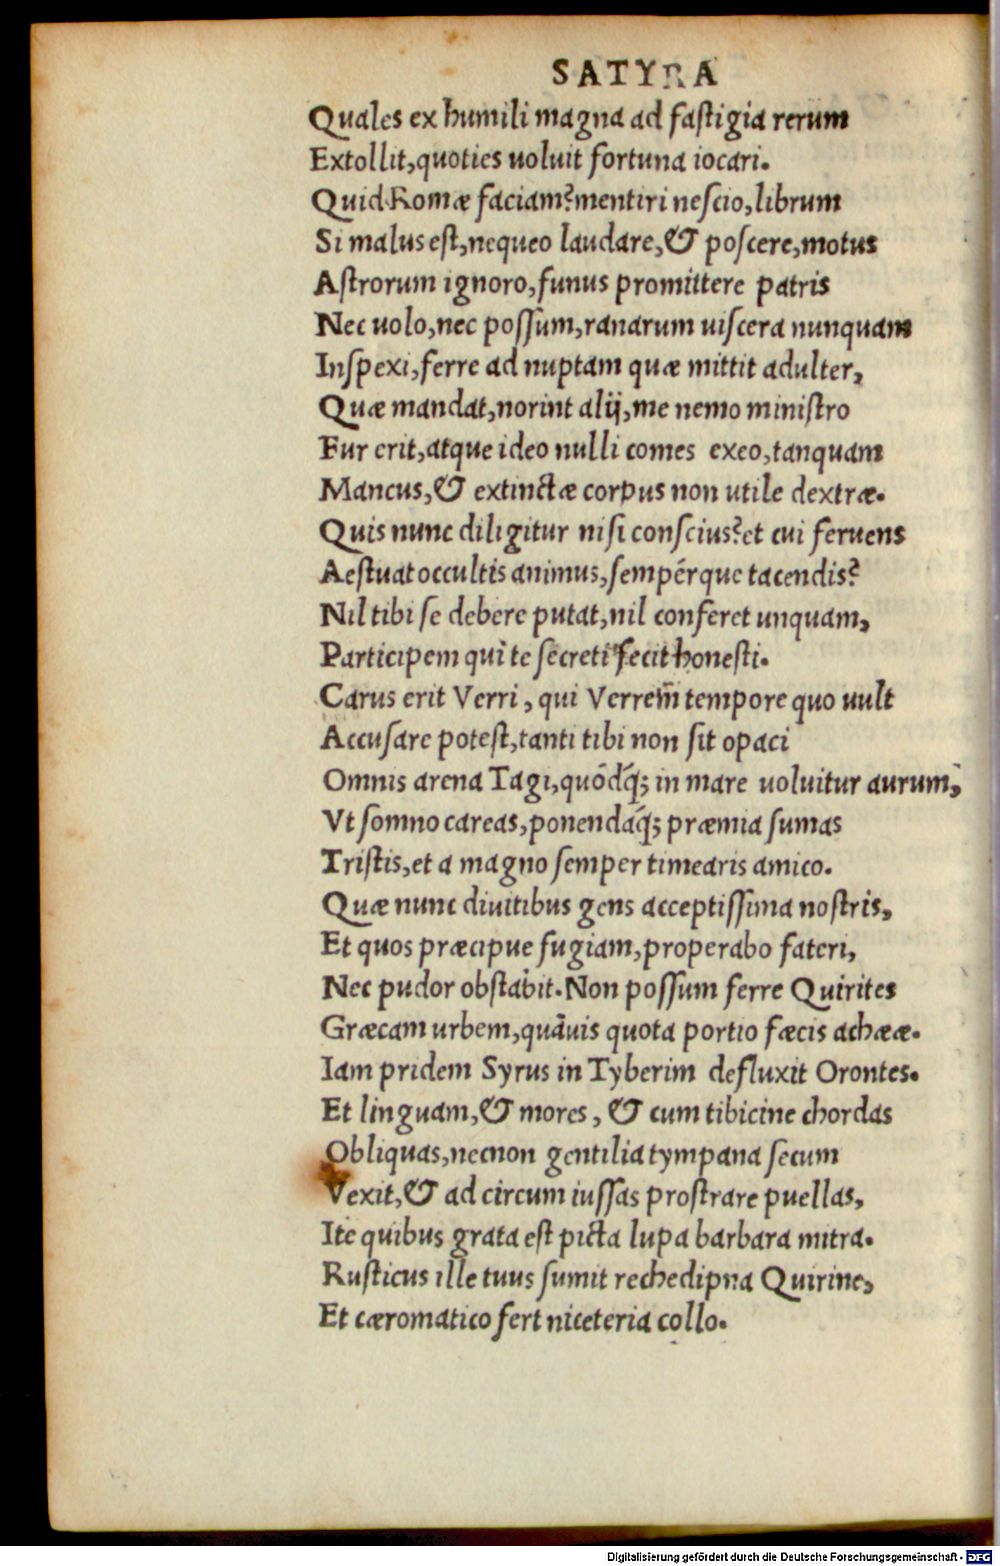 SATYRA
Quales ex humili magna ad fastigia rerum
Extollit,quoties uoluit fortuna iocari.
Quid Romæ faciam?mentiri nescio,librum
Si malus est,nequeo laudare,& poscere,motus
Astrorum ignoro,funus promittere patris
Nec uolo,nec possum,ranarum uiscera nunquam
Inspexi,ferre ad nuptam quæ mittit adulter,
Quæ mandat,norint alij,me nemo ministro
Fur erit,atque ideo nulli comes exeo,tanquam
Mancus,& extinctæ corpus non utile dextræ.
Quis nunc diligitur nisi conscius?et cui feruens
Aestuat occultis animus,sempérque tacendis?
Nil tibi se debere putat,nil conferet unquam,
Participem qui te secreti fecit honesti.
Carus erit Verri, qui Verrem tempore quo uult
Accusare potest,tanti tibi non sit opaci
Omnis arena Tagi,quódq́; in mare uoluitur aurum,
Vt somno careas,ponendaq́; præmia sumas
Tristis,et a magno semper timearis amico.
Quæ nunc diuitibus gens acceptissima nostris,
Et quos præcipue fugiam,properabo fateri,
Nec pudor obstabit.Non possum ferre Quirites
Græcam urbem,quãuis quota portio fæcis achææ.
Iam pridem Syrus in Tyberim defluxit Orontes.
Et linguam,& mores, & cum tibicine chordas
Obliquas,necnon gentilia tympana secum
Vexit,& ad circum iussas prostrare puellas,
Ite quibus grata est picta lupa barbara mitra.
Rusticus ille tuus sumit rechedipna Quirine,
Et cæromatico fert niceteria collo.
Digitalisierung gefördert durch die Deutsche Forschungsgemeinschaft - DFG